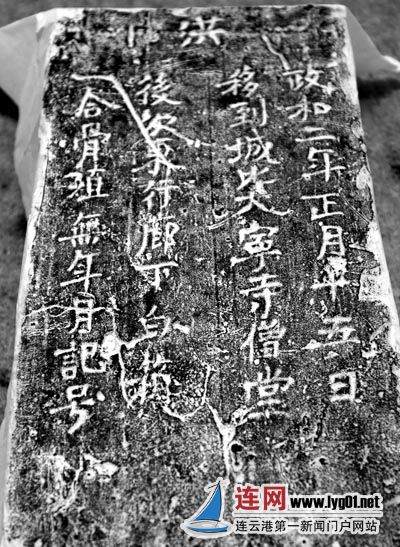 洪
政和二年正月廿五日
移到城天寧寺僧堂
後次行廊下白
一合骨殖無年月記号
连网 www.lyg01.net
连云港第一新闻门户网站